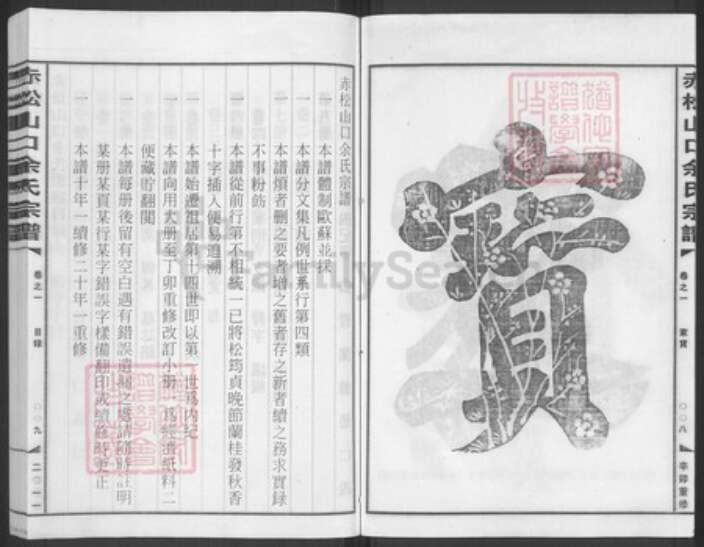 赤松山口余氏宗譜
卷之一
家寶
〇〇八
辛卯重修
寶
赤松山口余氏宗譜
一 本譜體制歐蘇並採
一 本譜分文集凡例世系行第四類
一 本譜煩者刪之要者增之舊者存之新者續之務求實錄
不事粉飾
一 本譜從前行第不相統一已將松筠貞晚節蘭桂發秋香
十字插入便易追溯
一 本譜始遷祖居第十四世即以第一世爲內紀
一 本譜向用大册至丁卯重修改訂小册一爲經濟紙料二
便藏貯翻閱
一 本譜每册後留有空白遇有錯誤遺漏之處請隨時註明
某册某頁某行某字錯誤字樣備翻印或續修時更正
一 本譜十年一續修二十年一重修
赤松山口余氏宗譜
卷之一
目錄
〇〇九
二〇一一
FamilySearch